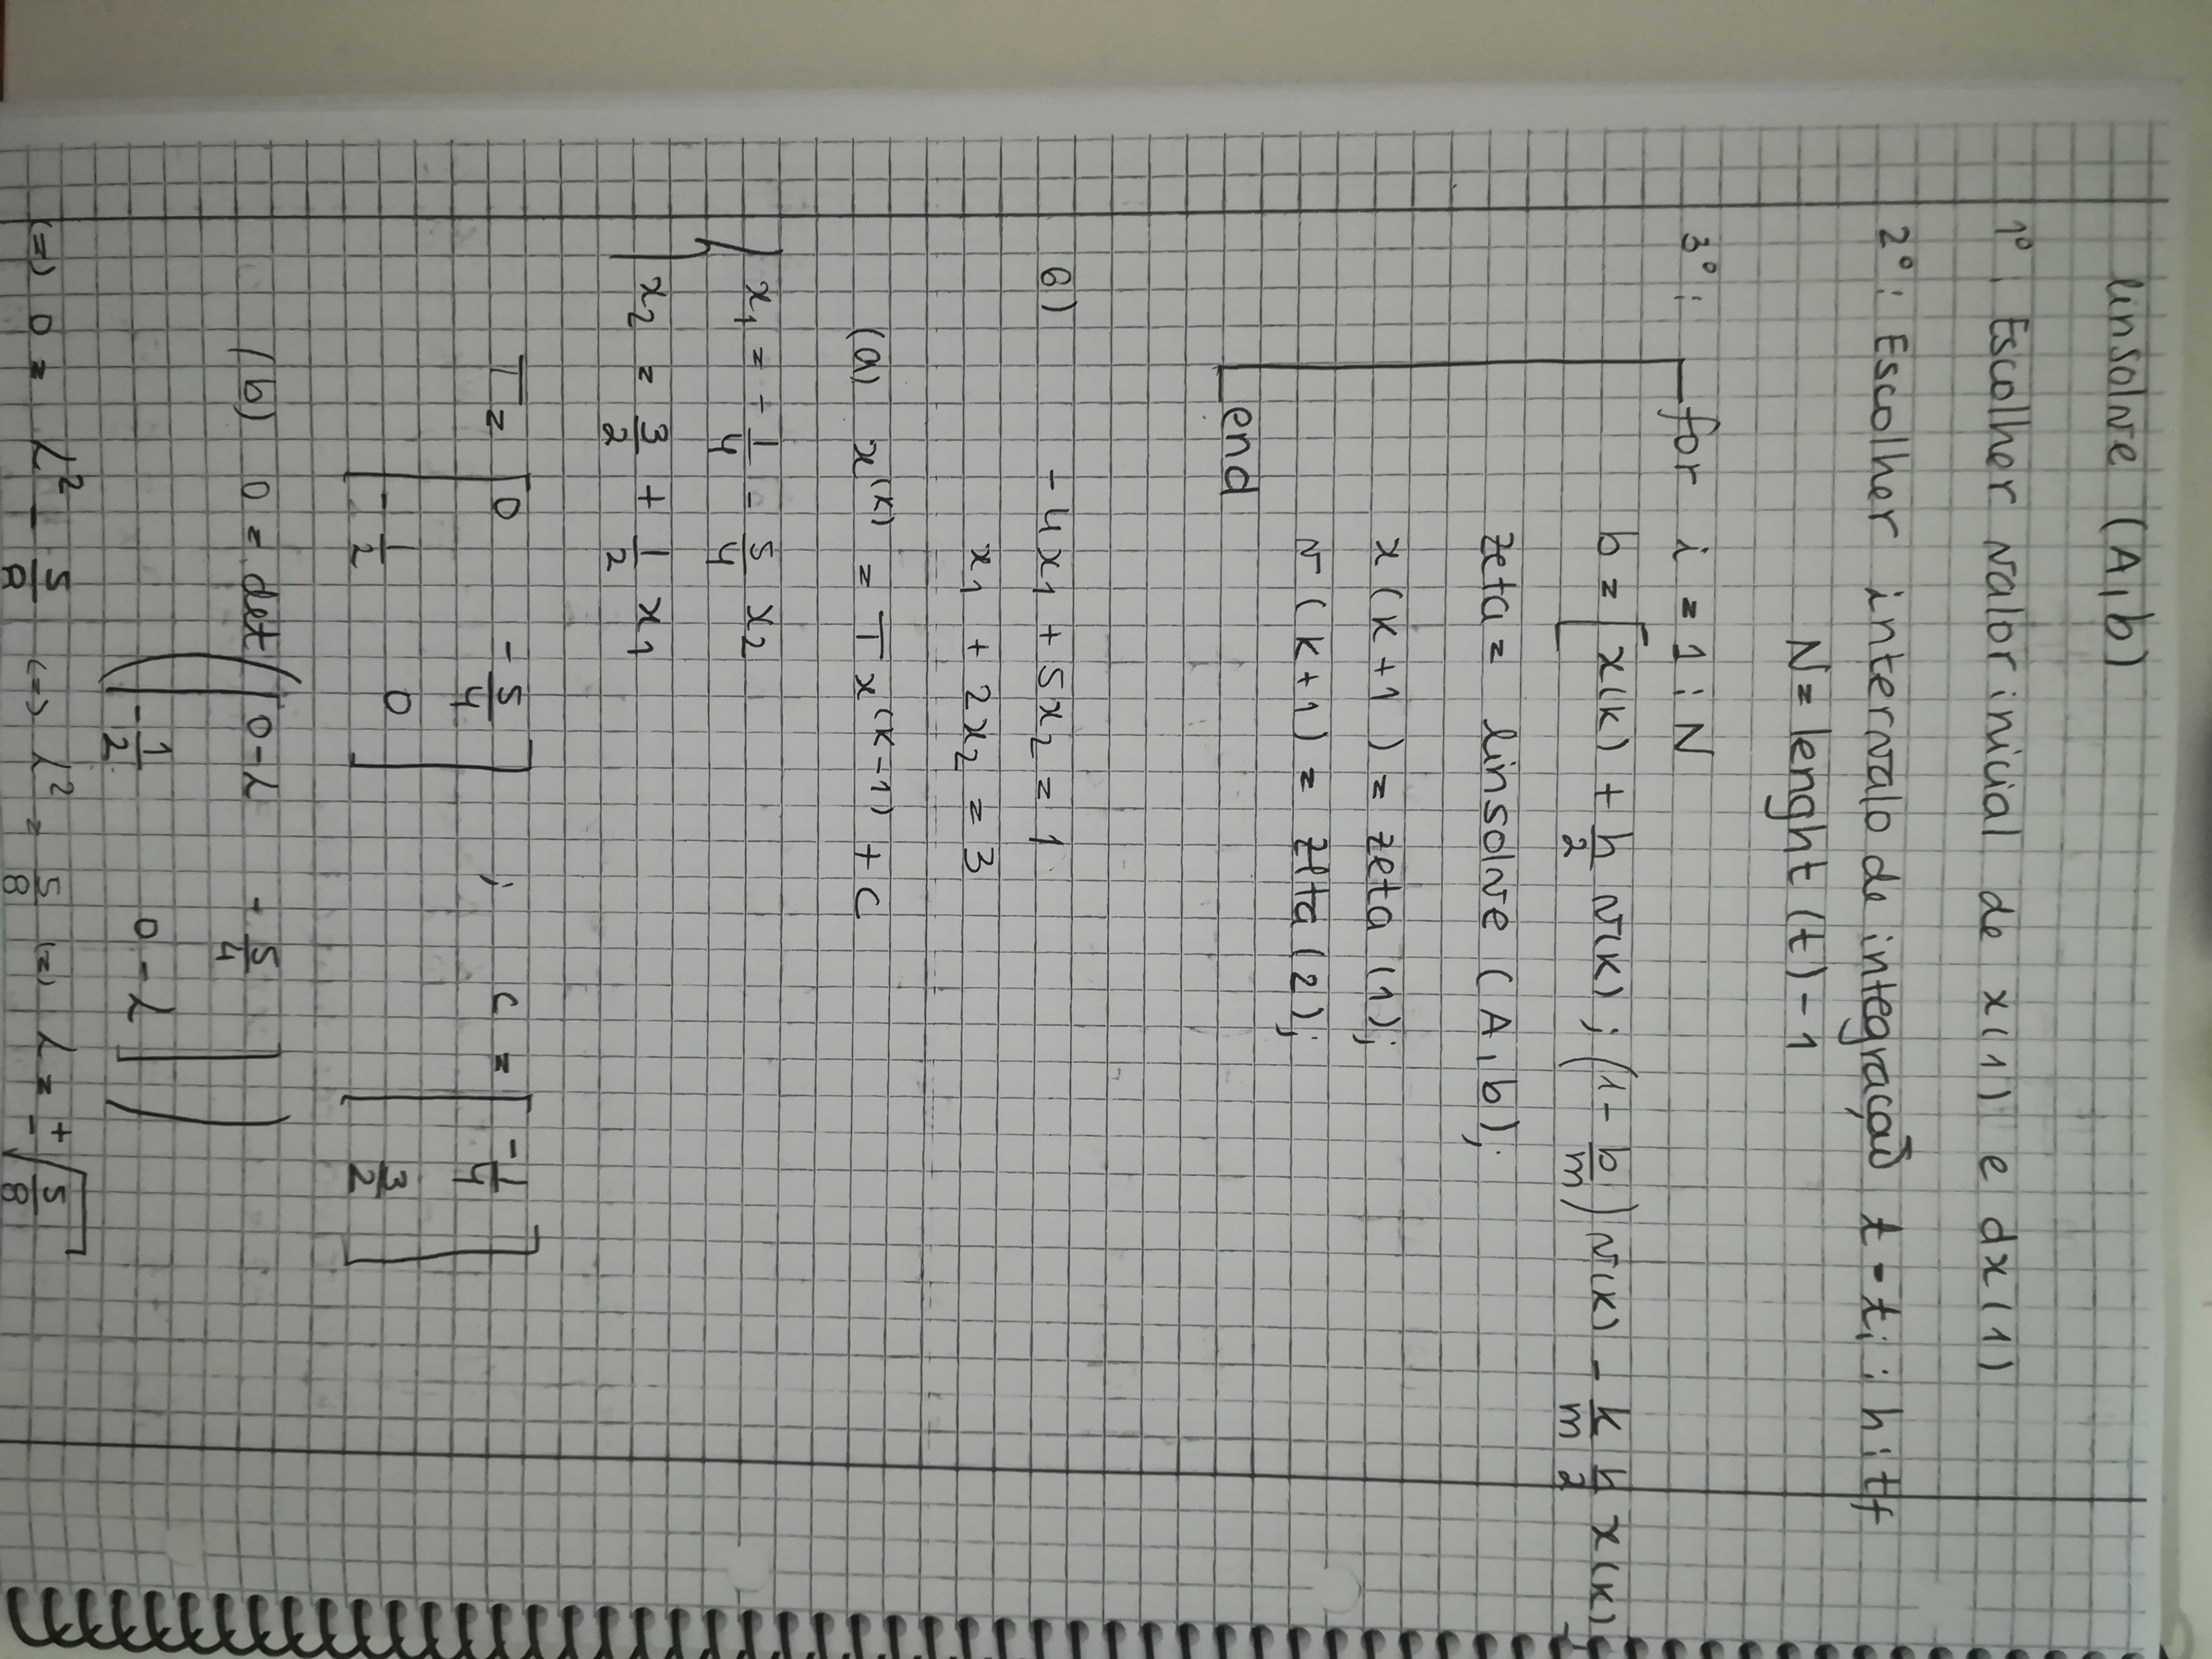 linsolve (A,b)
1º: Escolher valor inicial de x(1) e dx(1)
2º: Escolher intervalo de integração t = ti : h : tf
N = lenght (t) - 1
3º: for i = 1 : N
b = [x(k) + h/2 v(k) ; (1 - b/m) v(k) - k/m h/2 x(k)
zeta = linsolve (A,b);
x (k+1) = zeta (1);
v (k+1) = zeta (2);
end
6) -4x₁ + 5x₂ = 1
x₁ + 2x₂ = 3
(a) x^(k) = T x^(k-1) + c
x₁ = -1/4 - 5/4 x₂
x₂ = 3/2 + 1/2 x₁
T = [0 -5/4 ; -1/2 0] ; c = [-1/4 ; 3/2]
(b) 0 = det([0-λ -5/4 ; -1/2 0-λ])
(=) 0 = λ² - 5/8 (=) λ² = 5/8 (=) λ = ±√(5/8)